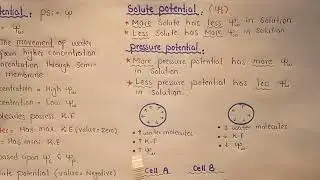 potential: Psi = Ψ
Ψw
The movement of water
from higher concentration
concentration through semi-
membrane
concentration = High Ψw
concentration = Low Ψw
molecules possess K.E
Has max. K.E (value = zero)
Has mini. K.E
based upon Ψs & Ψp
potential (value = Negative)
Solute potential: (Ψs)
* More Solute has less Ψw in solution
* Less Solute has more Ψw in solution
pressure potential:
* More pressure potential has more Ψw in solution.
* Less pressure potential has less Ψw in solution.
• ↑ water molecules
• ↑ K.E
• ↑ Ψw
• ↓ water molecules
• ↓ K.E
• ↓ Ψw
Cell A
Cell B